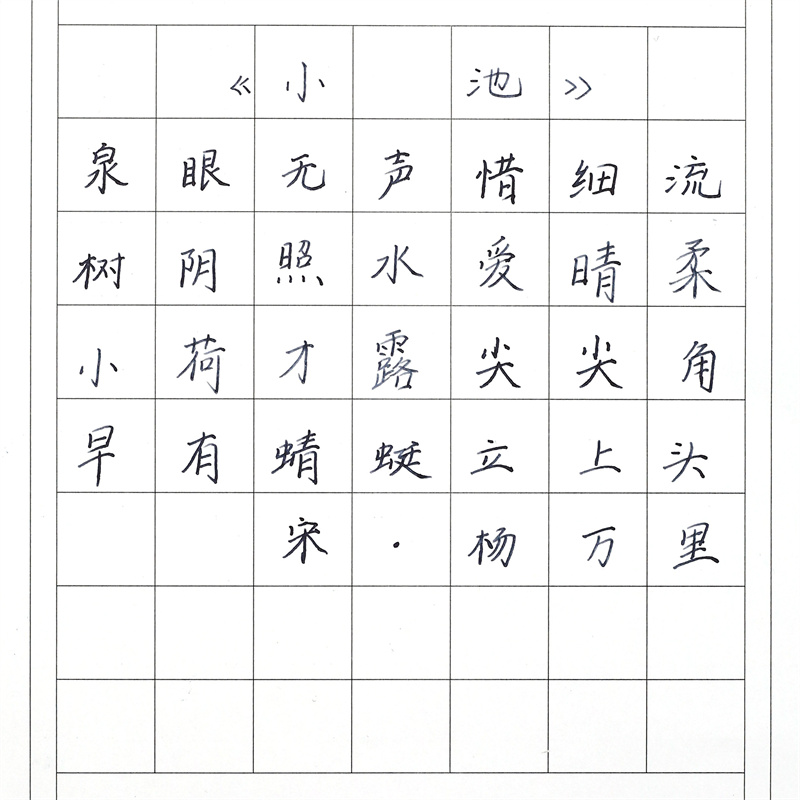 《小池》
泉眼无声惜细流
树阴照水爱晴柔
小荷才露尖尖角
早有蜻蜓立上头
宋·杨万里